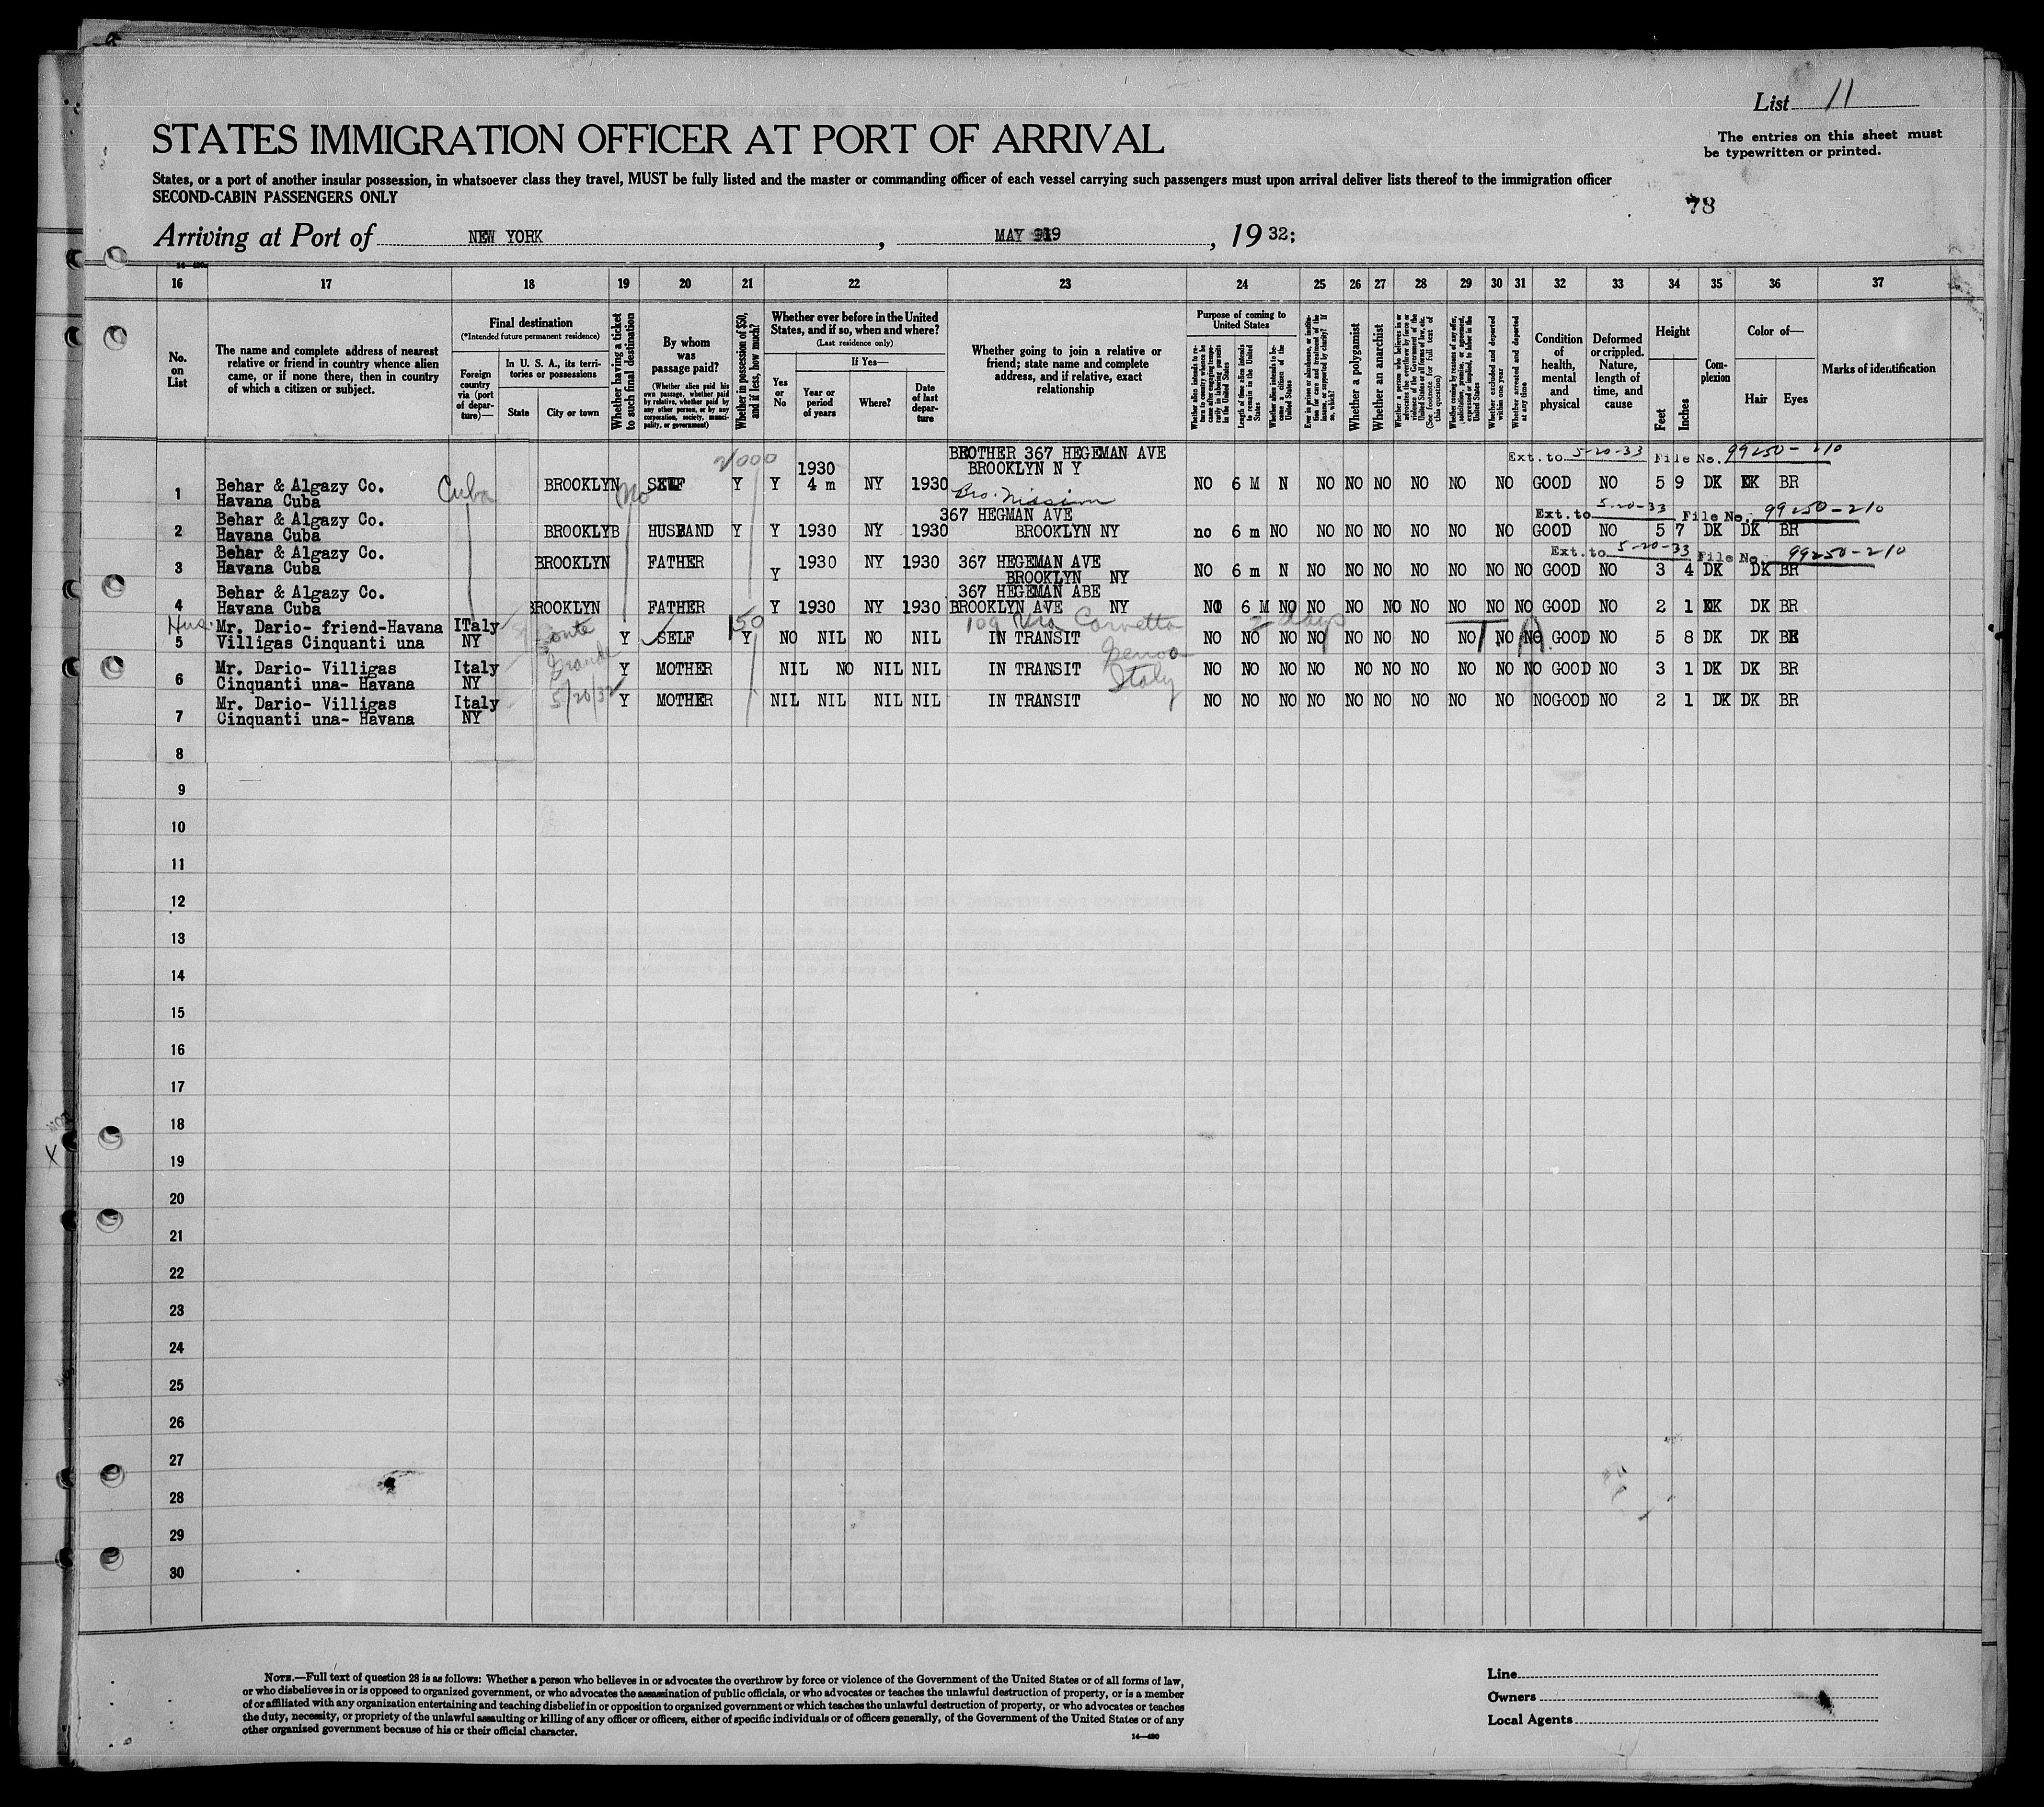 List 11
STATES IMMIGRATION OFFICER AT PORT OF ARRIVAL
The entries on this sheet must
be typewritten or printed.
States, or a port of another insular possession, in whatsoever class they travel, MUST be fully listed and the master or commanding officer of each vessel carrying such passengers must upon arrival deliver lists thereof to the immigration officer
SECOND-CABIN PASSENGERS ONLY
78
Arriving at Port of NEW YORK, MAY 19, 1932;
16 17 18 19 20 21 22 23 24 25 26 27 28 29 30 31 32 33 34 35 36 37
No. on List
The name and complete address of nearest relative or friend in country whence alien came, or if none there, then in country of which a citizen or subject.
Final destination
(*Intended future permanent residence)
Foreign country via (port of departure)—
In U. S. A., its territories or possessions
State
City or town
Whether having a ticket to such final destination
By whom was passage paid?
(Whether alien paid his own passage, whether paid by relative, whether paid by any other person, or by any corporation, society, municipality, or government)
Whether in possession of $50, and if less, how much?
Whether ever before in the United States, and if so, when and where?
(Last residence only)
Yes or No
If Yes—
Year or period of years
Where?
Date of last departure
Whether going to join a relative or friend; state name and complete address, and if relative, exact relationship
Purpose of coming to United States
Length of time alien intends to remain in the United States
Whether alien intends to become a citizen of the United States
Whether a polygamist
Whether an anarchist
Whether excluded and deported within one year
Whether arrested and deported at any time
Condition of health, mental and physical
Deformed or crippled. Nature, length of time, and cause
Height
Feet
Inches
Complexion
Color of—
Hair
Eyes
Marks of identification
BROTHER 367 HEGEMAN AVE
Ext. to 5-20-33 File No. 99250-210
1930 BROOKLYN N Y
1 Behar & Algazy Co. Cuba BROOKLYN No SELF Y Y 4 m NY 1930 NO 6 M N NO NO NO NO NO NO GOOD NO 5 9 DK DK BR
Havana Cuba Bro. Nissim
367 HEGMAN AVE
Ext. to 5-20-33 File No. 99250-210
2 Behar & Algazy Co. BROOKLYB HUSBAND Y Y 1930 NY 1930 BROOKLYN NY no 6 m NO NO NO NO NO NO NO GOOD NO 5 7 DK DK BR
Havana Cuba
Ext. to 5-20-33 File No. 99250-210
3 Behar & Algazy Co. BROOKLYN FATHER Y 1930 NY 1930 367 HEGEMAN AVE NO 6 m N NO NO NO NO NO NO NO GOOD NO 3 4 DK DK BR
Havana Cuba BROOKLYN NY
367 HEGEMAN ABE
4 Behar & Algazy Co. BROOKLYN FATHER Y 1930 NY 1930 BROOKLYN AVE NY NO 6 M NO NO NO NO NO NO NO NO GOOD NO 2 1 DK DK BR
Havana Cuba
150 109 Via Corvetto 2 days
5 Mr. Dario- friend-Havana ITaly Conte Y SELF Y NO NIL NO NIL IN TRANSIT NO NO NO NO NO NO NO NO NO NO GOOD NO 5 8 DK DK BR
Villigas Cinquanti una NY Grande Genoa
6 Mr. Dario- Villigas Italy Y MOTHER NIL NO NIL NIL IN TRANSIT Italy NO NO NO NO NO NO NO NO NO NO GOOD NO 3 1 DK DK BR
Cinquanti una- Havana NY 5/20/32
7 Mr. Dario- Villigas Italy Y MOTHER NIL NIL NIL NIL IN TRANSIT NO NO NO NO NO NO NO NO NO NO GOOD NO 2 1 DK DK BR
Cinquanti una- Havana NY
8
9
10
11
12
13
14
15
16
17
18
19
20
21
22
23
24
25
26
27
28
29
30
NOTE.—Full text of question 28 is as follows: Whether a person who believes in or advocates the overthrow by force or violence of the Government of the United States or of all forms of law,
or who disbelieves in or is opposed to organized government, or who advocates the assassination of public officials, or who advocates or teaches the unlawful destruction of property, or is a member
of or affiliated with any organization entertaining and teaching disbelief in or opposition to organized government or which teaches the unlawful destruction of property, or who advocates or teaches
the duty, necessity, or propriety of the unlawful assaulting or killing of any officer or officers, either of specific individuals or of officers generally, of the Government of the United States or of any
other organized government because of his or their official character.
14—480
Line
Owners
Local Agents